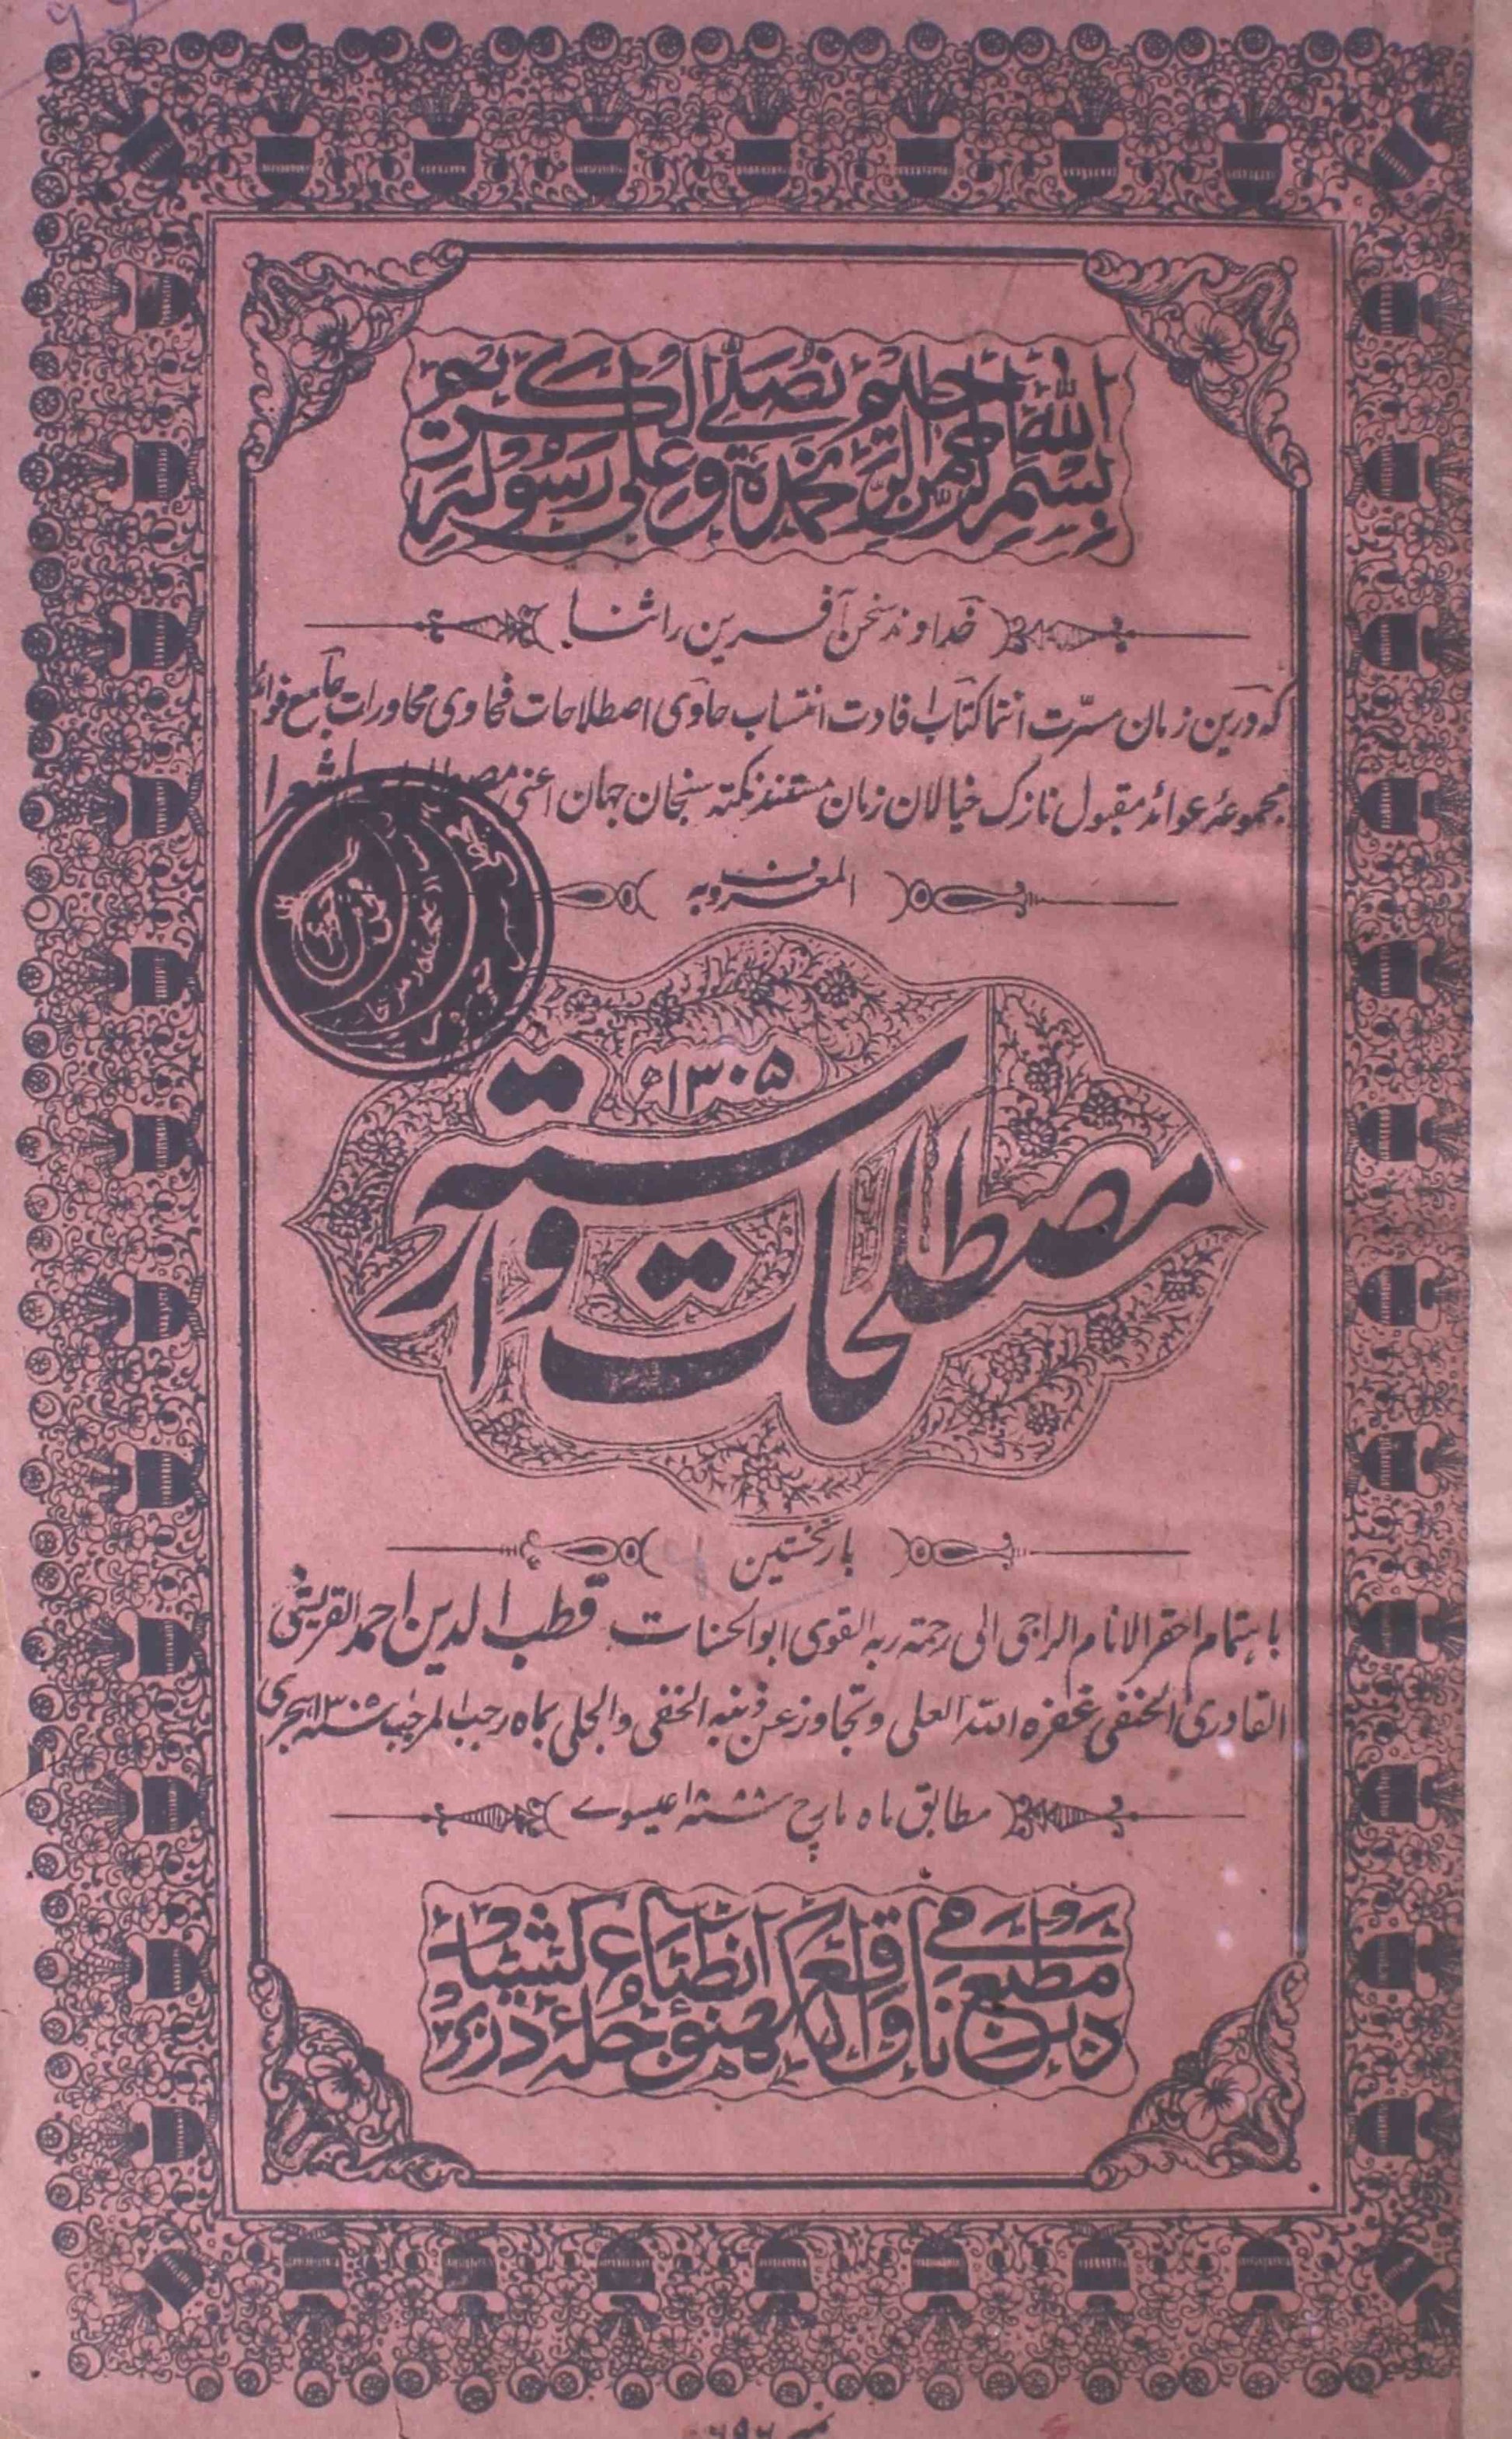 بسم الله الرحمن الرحيم نحمده ونصلی علی رسوله الكريم
خداوند سخن آفرین را ثنا
که درین زمان مسرّت انتما کتاب افادت انتساب حاوی اصطلاحات فحاوی محاورات جامع فوائد
مجموعۂ عوائد مقبول نازک خیالان زمان مستند نکته سنجان جهان اعنی الشعرا
المعروف به
۱۳۰۵ھ
مصطلحات وارسته
بار نخستین
باهتمام احقر الانام الراجی الی رحمة ربه القوی ابو الحسنات قطب الدین احمد القریشی
القادری الحنفی غفره الله العلی وتجاوز عن ذنبه الخفی والجلی بماه رجب المرجب سنه ۱۳۰۵ هجری
مطابق ماه مارچ سنه ۱۸۸۸ عیسوی
در مطبع نامی واقع لکهنؤ انطباع